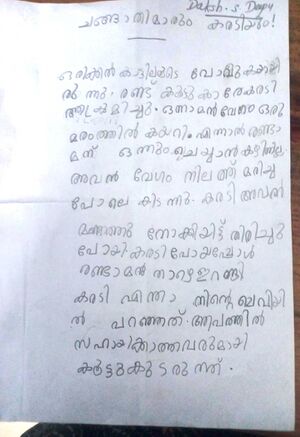 Daksh. S. Deepu
ചങ്ങാതിമാരും കരടിയും!
ഒരിക്കൽ കാട്ടിലൂടെ പോവുകയായി
രുന്നു. രണ്ട് കൂട്ടുകാരേകരടി
ആക്രമിച്ചു. ഒന്നാമൻ വേഗം ഒരു
മരത്തിൽ കയറി. എന്നാൽ രണ്ടാ
മന് ഒന്നും ചെയ്യാൻ കഴിഞ്ഞില്ല.
അവൻ വേഗം നിലത്ത് മരിച്ചു
പോലെ കിടന്നു. കരടി അവൽ
മണത്തു നോക്കിയിട്ട് തിരിച്ചു
പോയി. കരടി പോയപ്പോൾ
രണ്ടാമൻ താഴെ ഇറങ്ങി
കരടി എന്താ നിന്റെ ചെവിയി
ൽ പറഞ്ഞത്. ആപത്തിൽ
സഹായിക്കാത്തവരുമായി
കൂട്ടുകൂടരുത്.